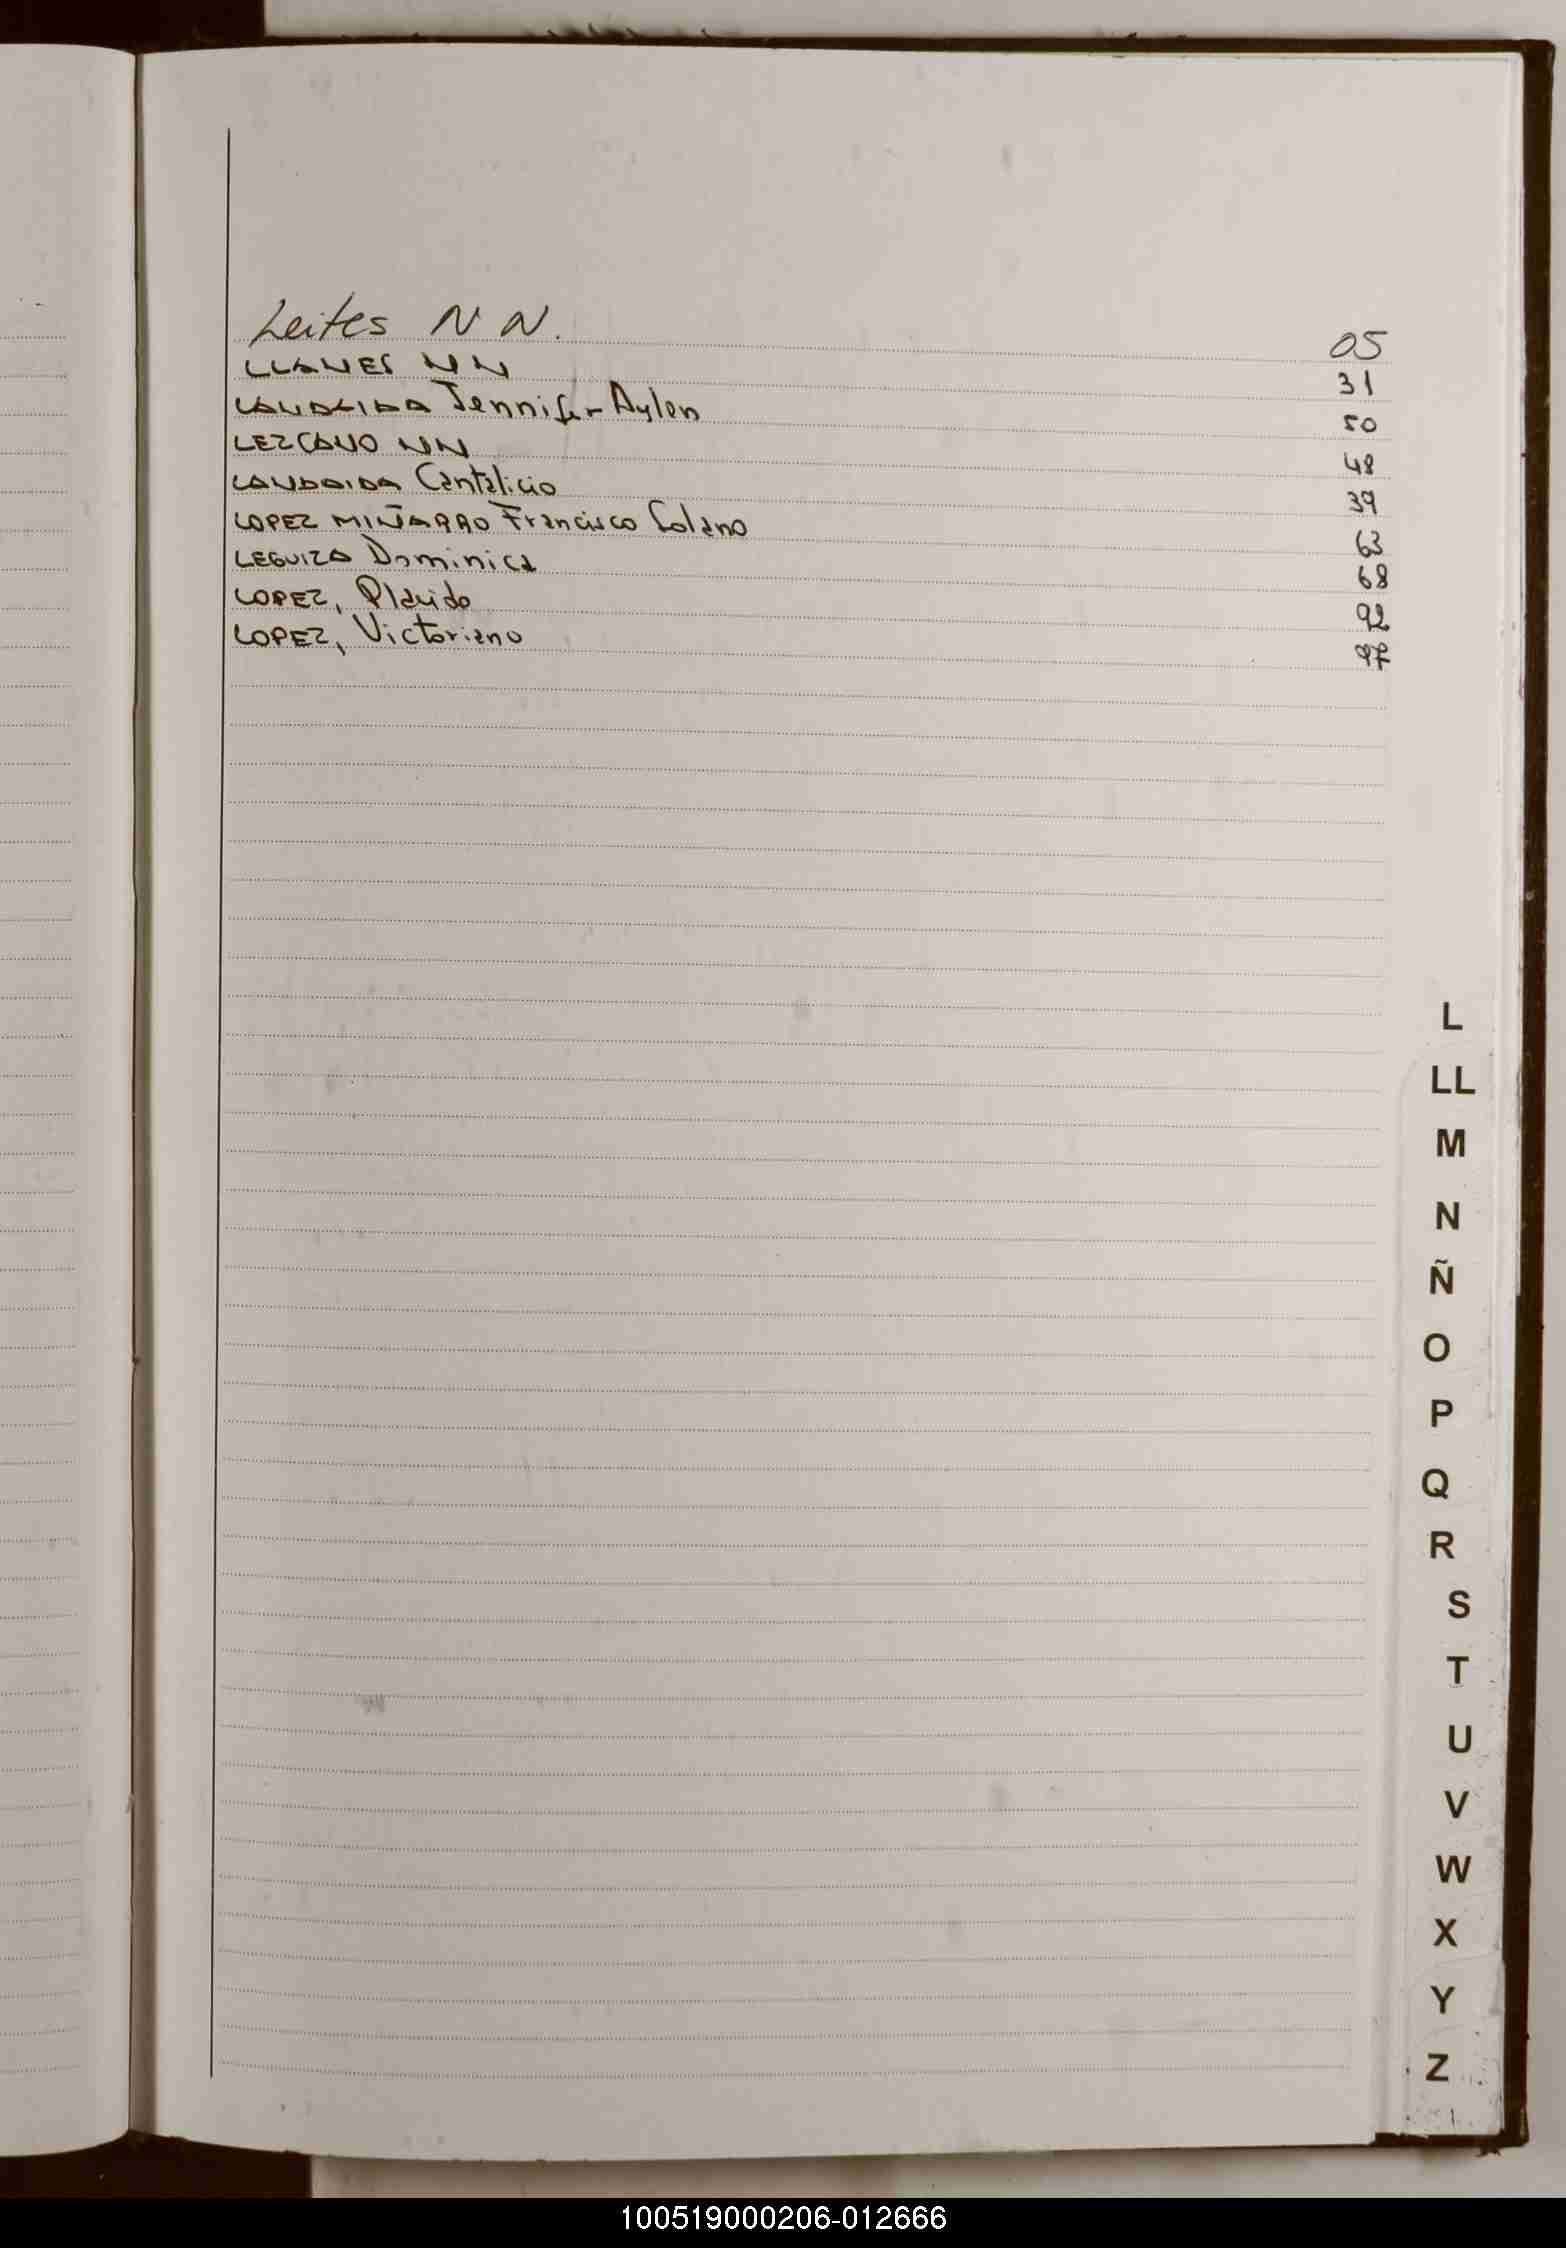 Leites N N. 05
LLANES NN 31
LANDAIDA Jennifer Aylen 50
LEZCANO NN 48
LANDAIDA Cantalicio 39
LOPEZ MIÑARRO Francisco Solano 63
LEGUIZA Dominica 68
LOPEZ, Placido 92
LOPEZ, Victoriano 97
L
LL
M
N
Ñ
O
P
Q
R
S
T
U
V
W
X
Y
Z
100519000206-012666